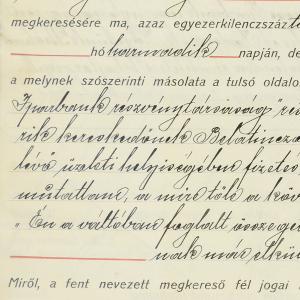 megkeresésére ma, azaz egyezerkilenczszáz
hó harmadik napján, de
a melynek szószerinti másolata a tulsó oldalo
Iparbank részvénytársaság"
rik kereskedőnek Belatincz
lévő üzleti helyiségében fizetes
mutattam, a mire tőle a köv
„Én a váltóban foglalt összege
nak már elkül
Miről, a fent nevezett megkereső fél jogai